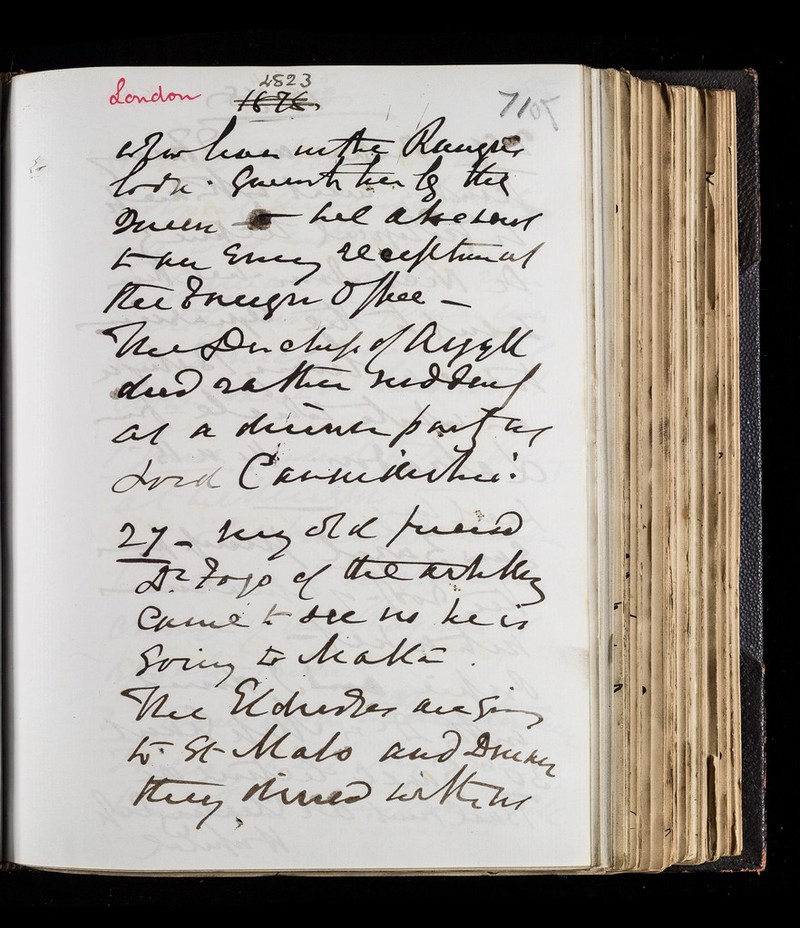 London 4823 7105
1876
who lives in the Rangers
lodge given to her by the
Queen — We also went
to an Evening reception at
the Foreign Office —
The Duchess of Argyll
died rather suddenly
at a dinner party at
Lord
27 — My old friend
Dr. Fogo of the artillery
came to see us he is
going to Malta.
The Eldridges are going
to St Malo and
they dined with us